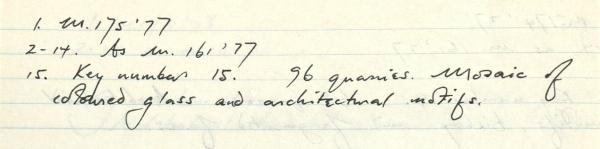 1. M.175'77
2-14. As M.161'77
15. Key number 15. 96 quarries. Mosaic of
coloured glass and architectural motifs.